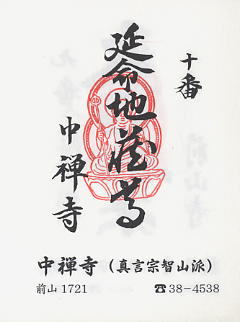 十番
延命地蔵尊
中禅寺
中禅寺（真言宗智山派）
前山1721 ☎38-4538